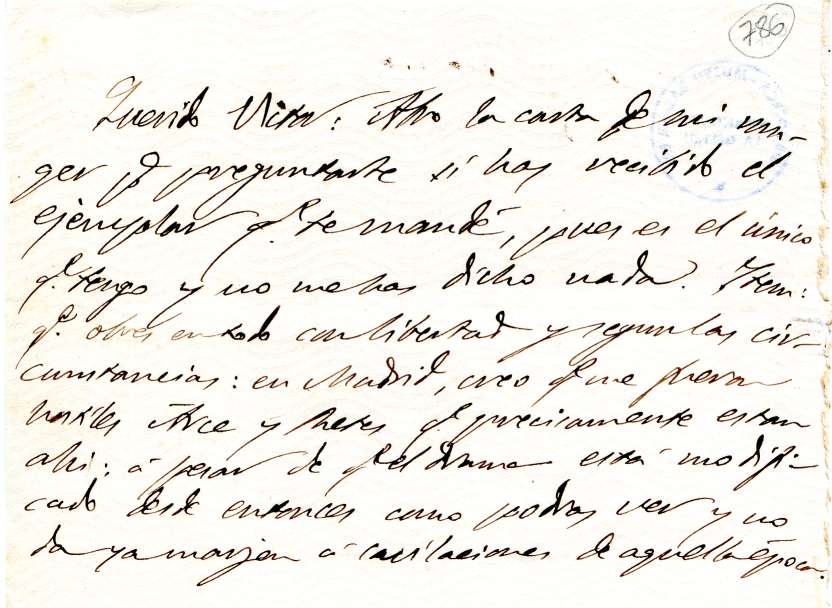 786
Querido Victor: Abro la carta de mi mu-
ger pª preguntarte si has recibido el
ejemplar q.e te mandé, pues es el único
q.e tengo y no me has dicho nada. Item:
q.e obres en todo con libertad y segun las cir-
cunstancias: en Madrid, creo q.e me fueron
hostiles Arce y Retes q.e precisamente estan
ahi: á pesar de q.e el drama está modifi-
cado desde entonces como podras ver y no
da ya marjen á cavilaciones de aquella época.